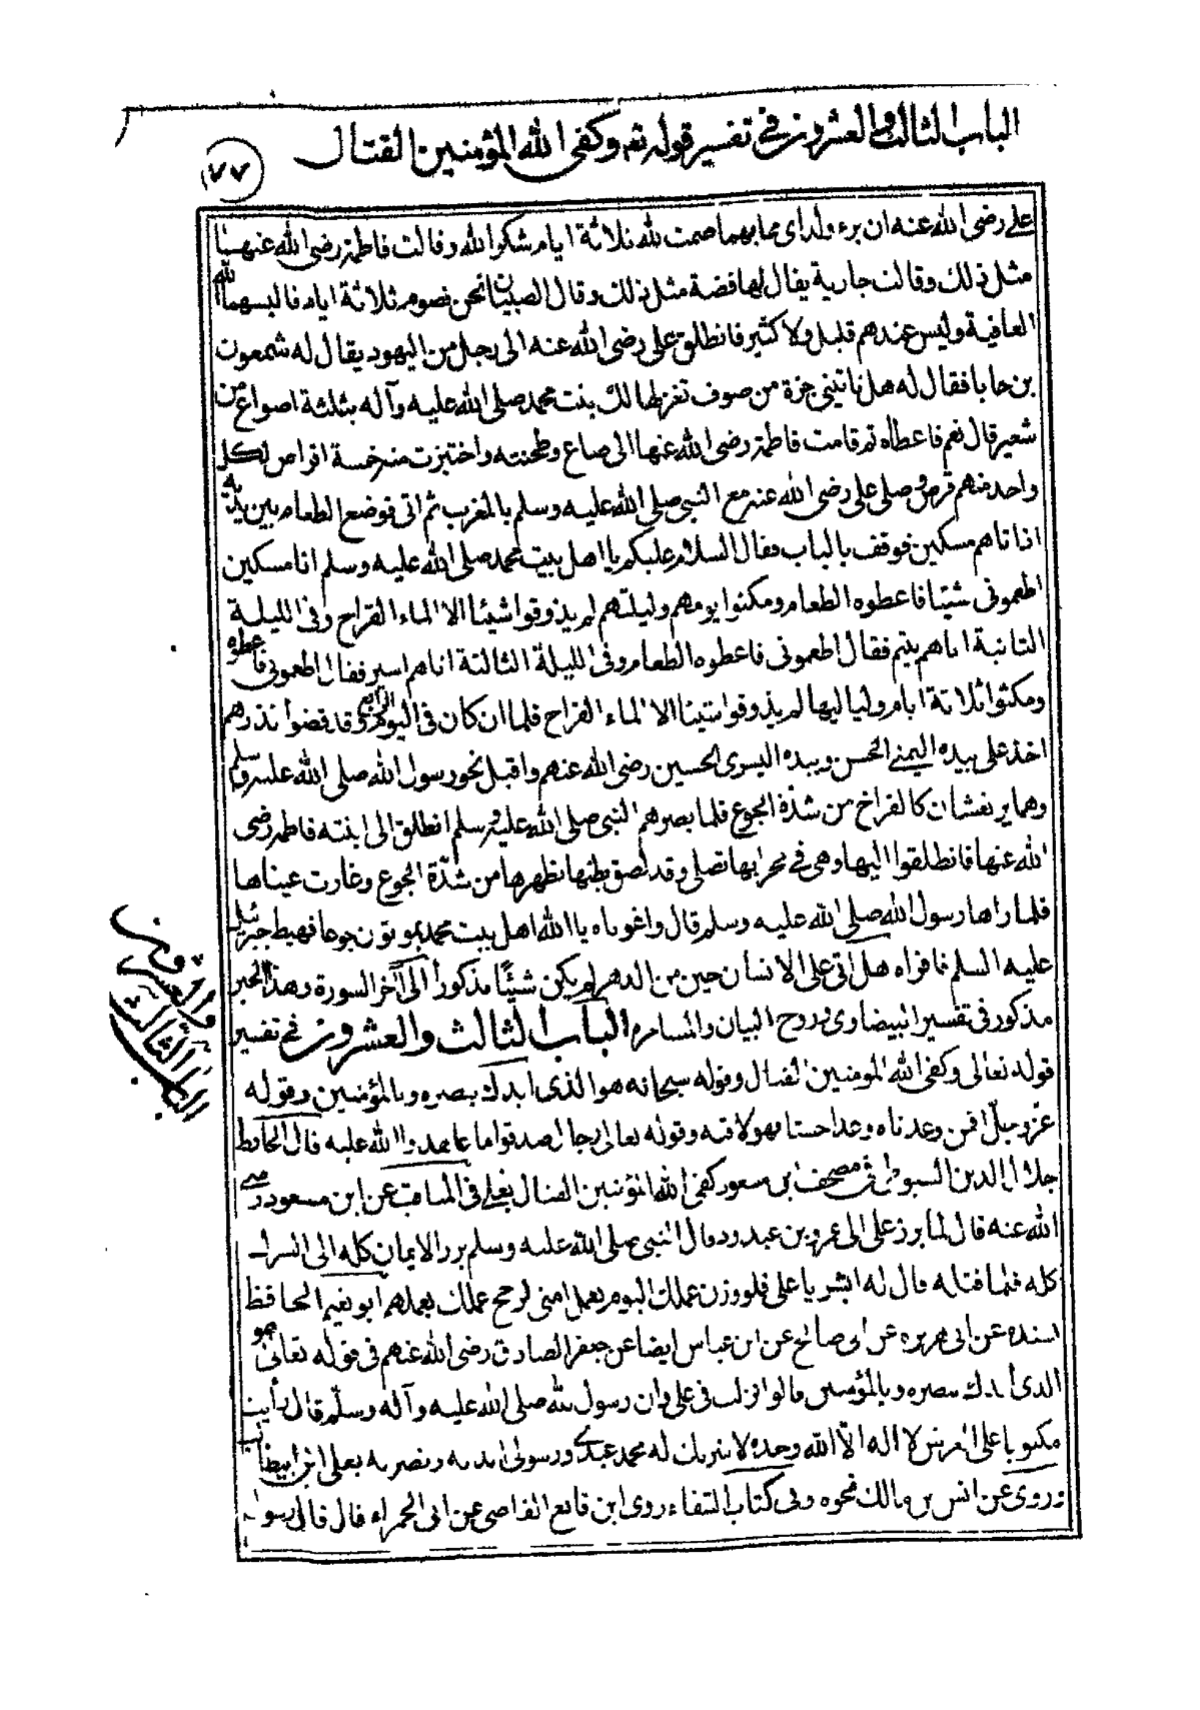 الباب الثالث والعشرون في تفسير قوله تع وكفى الله المؤمنين القتال
٧٧
علي رضي الله عنه ان برء ولداي مما بهما صمت لله ثلاثة ايام شكرا لله وقالت فاطمة رضي الله عنها
مثل ذلك وقالت جارية يقال لها فضة مثل ذلك وقال الصبيان نحن نصوم ثلاثة ايام فالبسهما الله
العافية وليس عندهم قليل ولا كثير فانطلق علي رضي الله عنه الى رجل من اليهود يقال له شمعون
بن حابا فقال له هل تاتيني جزة من صوف تغزلها لك بنت محمد صلى الله عليه وآله بثلثة اصواع من
شعير قال نعم فاعطاه ثم قامت فاطمة رضي الله عنها الى صاع وطحنته واختبزت منه خمسة اقراص لكل
واحد منهم قرص وصلى علي رضي الله عنه مع النبي صلى الله عليه وسلم بالمغرب ثم اتى فوضع الطعام بين يديه
اذ اتاهم مسكين فوقف بالباب فقال السلام عليكم يا اهل بيت محمد صلى الله عليه وسلم انا مسكين
اطعموني شيئا فاعطوه الطعام ومكثوا يومهم وليلتهم لم يذوقوا شيئا الا الماء القراح وفي الليلة
الثانية اتاهم يتيم فقال اطعموني فاعطوه الطعام وفي الليلة الثالثة اتاهم اسير فقال اطعموني فاعطوه
ومكثوا ثلاثة ايام ولياليها لم يذوقوا شيئا الا الماء القراح فلما ان كان في اليوم الرابع وقد قضوا نذرهم
اخذ علي بيده اليمنى الحسن وبيده اليسرى الحسين رضي الله عنهم واقبل نحو رسول الله صلى الله عليه وسلم
وهما يرتعشان كالفراخ من شدة الجوع فلما بصرهم النبي صلى الله عليه وسلم انطلق الى ابنته فاطمة رضي
الله عنها فانطلقوا اليها وهي في محرابها تصلي وقد لصق بطنها بظهرها من شدّة الجوع وغارت عيناها
فلما راها رسول الله صلى الله عليه وسلم قال واغوثاه يا الله اهل بيت محمد يموتون جوعا فهبط جبرئيل
عليه السلم فاقراه هل اتى على الانسان حين من الدهر لم يكن شيئًا مذكورا الى آخر السورة وهذا الخبر
مذكور في تفسير البيضاوي وروح البيان والمسامرة الباب الثالث والعشرون في تفسير
قوله تعالى وكفى الله المومنين القتال وقوله سبحانه هو الذي ايدك بنصره وبالمؤمنين وقوله
عز وجلّ افمن وعدناه وعدا حسنا فهو لاقيه وقوله تعالى رجال صدقوا ما عاهدوا الله عليه قال الحافظ
جلال الدين السيوطي في مصحف ابن مسعود كفى الله المؤمنين القتال بعلي في المناقب عن ابن مسعود رضي
الله عنه قال لما برز علي الى عمرو بن عبد ود قال النبي صلى الله عليه وسلم برز الايمان كله الى الشرك
كله فلما قتله قال له ابشر يا علي فلو وزن عملك اليوم بعمل امتي لرجح عملك بعملهم ابو نعيم الحافظ
بسنده عن ابي هريره عن ابي صالح عن ابن عباس ايضا عن جعفر الصادق رضي الله عنهم في قوله تعالى هو
الذي ايدك بنصره وبالمؤمنين قالوا نزلت في علي وان رسول الله صلى الله عليه وآله وسلّم قال رأيت
مكتوبا على العرش لا اله الّا الله وحده لا شريك له محمد عبدي ورسولي ايدته ونصرته بعلي ابن ابيطالب
وروى عن انس بن مالك نحوه وفي كتاب الشفاء روى ابن قانع القاضي عن ابي الحمراء قال قال رسول
الباب الثالث والعشرون في